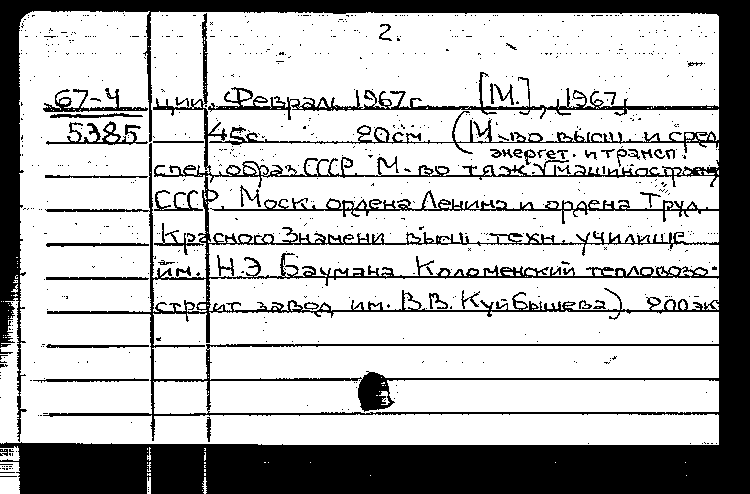 2.
67-4 ции. Февраль 1967г. [М.], [1967]
5385 45с. 20см. (М-во высш. и сред.
энергет. и трансп.
спец. образ. СССР. М-во тяж. машиностроен.
СССР. Моск. ордена Ленина и ордена Труд.
Красного Знамени высш. техн. училище
им. Н.Э. Баумана. Коломенский тепловозо-
строит. завод им. В.В. Куйбышева). 200эк